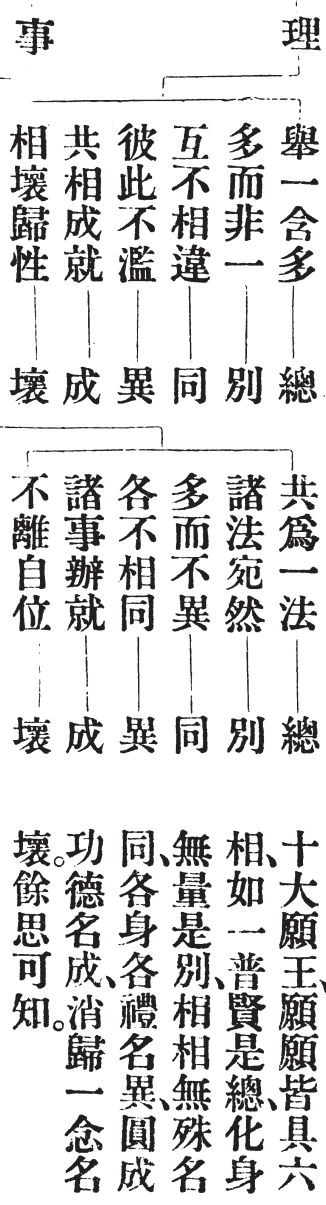 理
事
舉一含多 總
多而非一 別
互不相違 同
彼此不濫 異
共相成就 成
相壞歸性 壞
共爲一法 總
諸法宛然 別
多而不異 同
各不相同 異
諸事辦就 成
不離自位 壞
十大願王、願願皆具六
相、如一普賢是總、化身
無量是別、相相無殊名
同、各身各禮名異、圓成
功德名成、消歸一念名
壞。餘思可知。